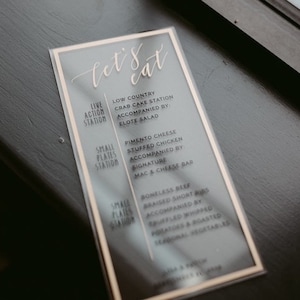 let's
eat
LIVE
ACTION
STATION
LOW COUNTRY
CRAB CAKE STATION
ACCOMPANIED BY
ELOTE SALAD
SMALL
PLATES
STATION
PIMENTO CHEESE
STUFFED CHICKEN
ACCOMPANIED BY
SIGNATURE
MAC & CHEESE BAR
SMALL
PLATES
STATION
BONELESS BEEF
BRAISED SHORT RIBS
ACCOMPANIED BY
TRUFFLED WHIPPED
POTATOES & ROASTED
SEASONAL VEGETABLES